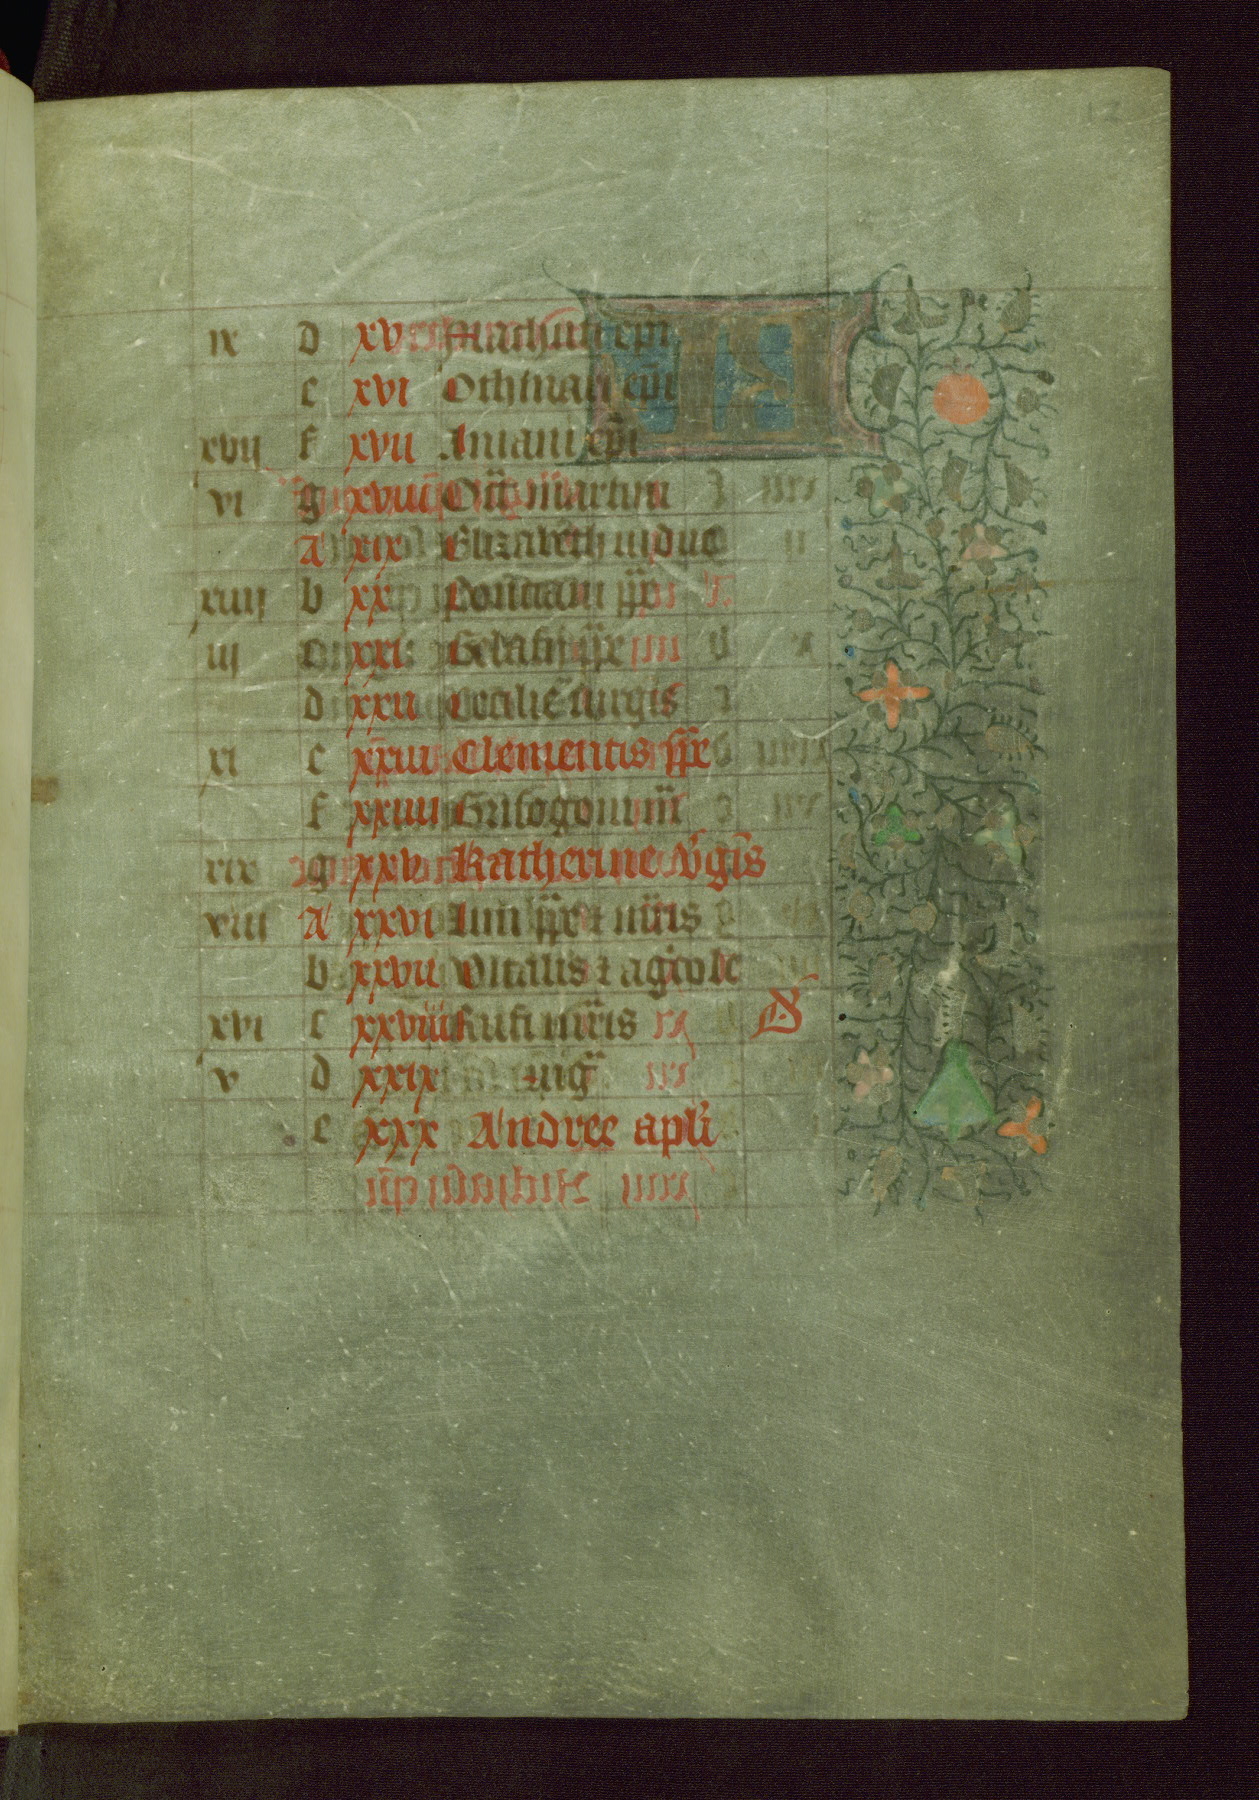 12
ix d xv Machuti epi
e xvi Othmari epi
xvii f xvii Aniani epi
vi g xviii Oct martini
A xix Elizabeth vidue
xiiii b xx Pontiani
iii c xxi Gelasii ppe
d xxii Cecilie virgis
xi e xxiii Clementis ppe
f xxiiii Grisogoni mr
xix g xxv Katherine v'gis
viii A xxvi Lini ppe & mris
b xxvii Vitalis & agicole
xvi c xxviii Rufi mris
v d xxix vig
e xxx Andree apli